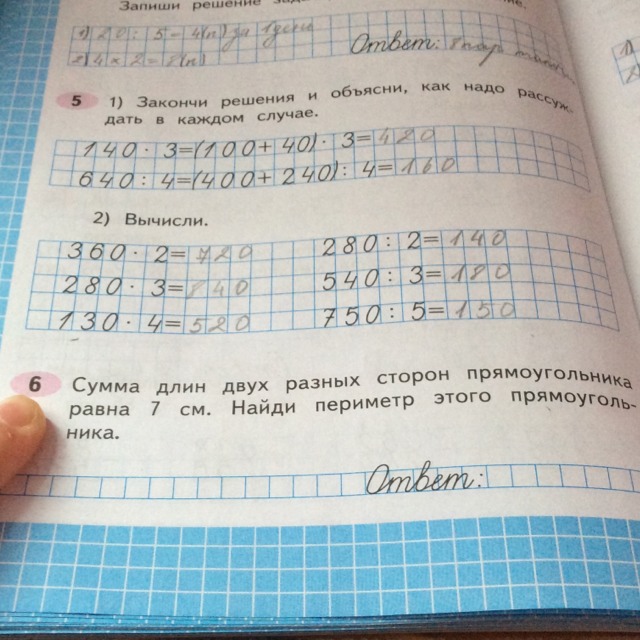 Запиши решение
1) 20 : 5 = 4(п) за 1 день
2) 4 × 2 = 8(п)
Ответ: 8 пар
5 1) Закончи решения и объясни, как надо рассуж-
дать в каждом случае.
140 · 3=(100+ 40) · 3=420
640 : 4=(400+ 240) : 4=160
2) Вычисли.
360 · 2=720 280 : 2=140
280 · 3=840 540 : 3=180
130 · 4=520 750 : 5=150
6 Сумма длин двух разных сторон прямоугольника
равна 7 см. Найди периметр этого прямоуголь-
ника.
Ответ: